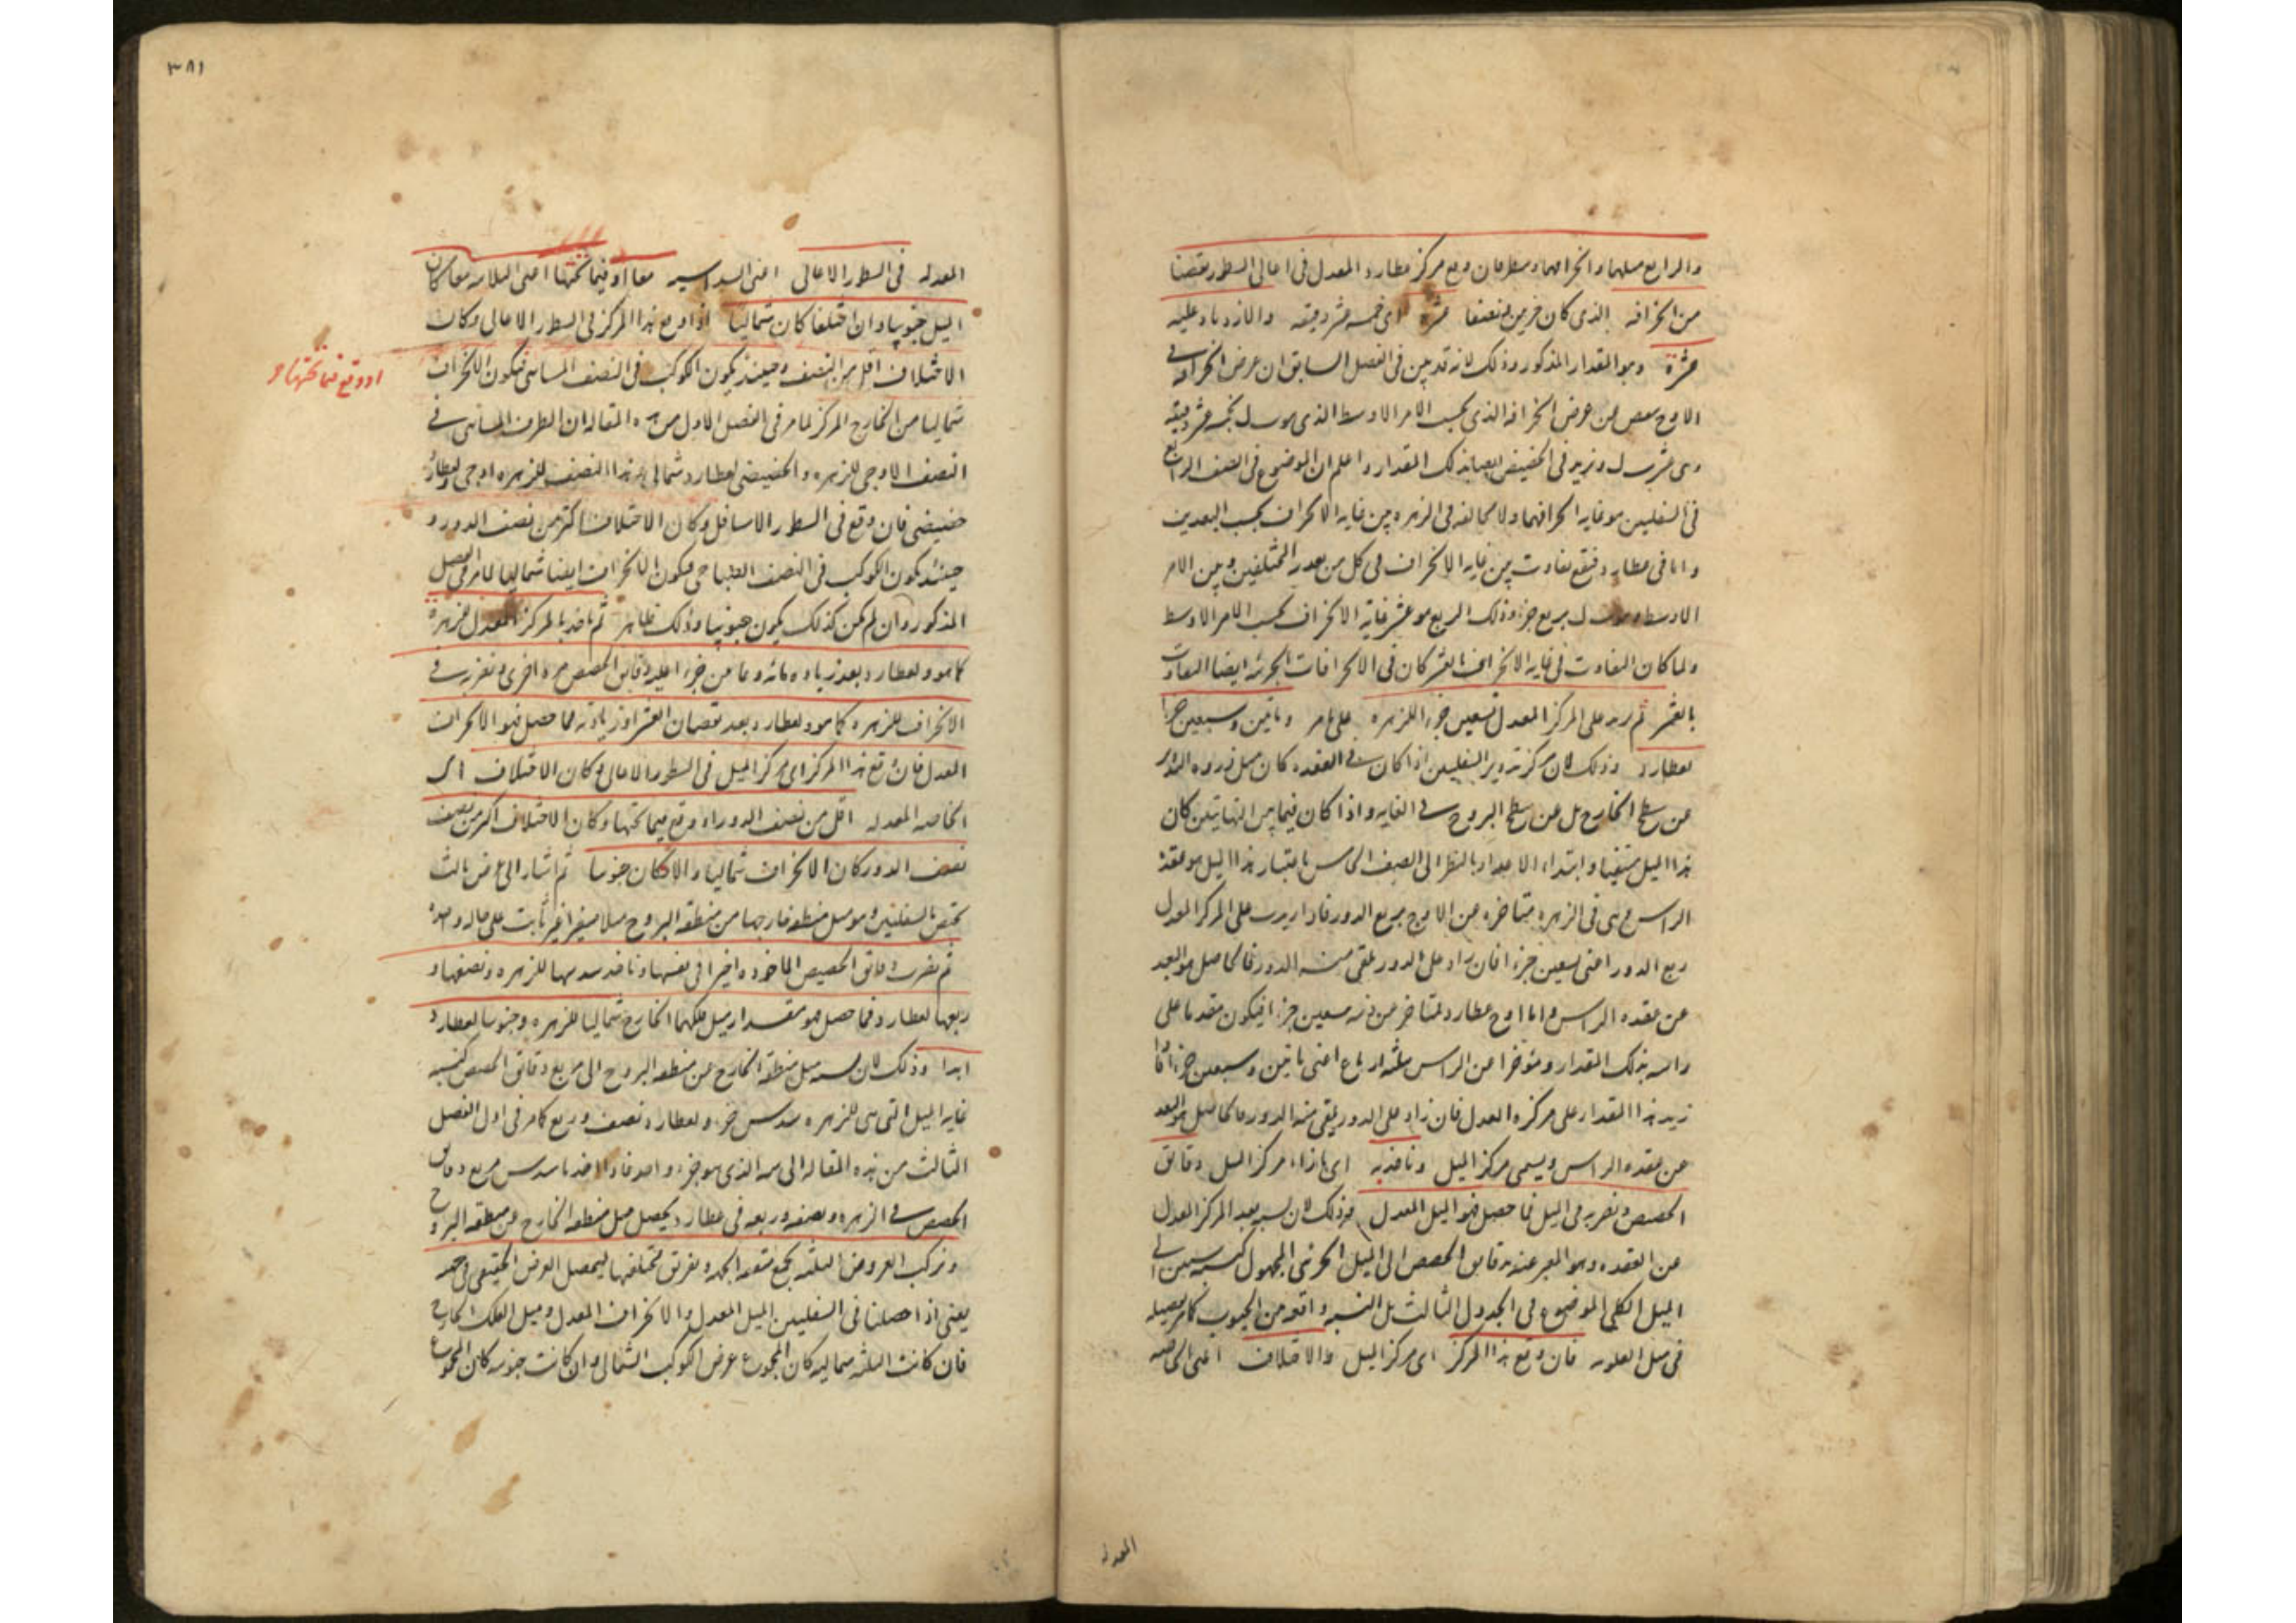 والرابع ميلهما وانحرافهما ومطرحان وقع مركز عطارد المعدل فى اعالى السطور نقصنا
من انحرافه الذى كان خرج عشره اى خمسه عشر دقيقه والا زدناه عليه
عشره وهو المقدار المذكور وذلك لانه قد بين فى الفصل السابق ان عرض انحرافه فى
الاوج ينقص من عرض انحرافه الذى بحسب الامر الاوسط الذى هو ب ل بخمسه عشر دقيقه
وهى عشر ب ل ويزيد فى الحضيض بعد ذلك المقدار واعلم ان الموضوع فى الصف الرابع
فى السفليين هو غايه انحرافهما ولا مخالفه فى الزهره بين غايه الانحراف بحسب البعدين
واما فى عطارد فيقع تفاوت بين غايه الانحراف فى كل من بعديه المختلفين وبين الامر
الاوسط وهو ب ل بربع جزء وذلك الربع هو عشر غايه الانحراف بحسب الامر الاوسط
ولما كان التفاوت فى غايه الانحراف العشر كان فى الانحرافات الجزئيه ايضا التفاوت
بالعشر ثم زيد على المركز المعدل تسعين جزءا للزهره على ما مر ومأتين وسبعين جزءا
لعطارد وذلك لان مركز تدوير السفليين اذا كان فى العقده كان ميل ذروه التدوير
عن سطح الخارج بل عن سطح البروج فى الغايه واذا كان فيما بين النهايتين كان
هذا الميل منتفيا وابتداء الاعداد بالنظر الى الصف الخامس باعتبار هذا الميل هو عقده
الراس وهى فى الزهره متاخره عن الاوج بربع الدور فاذا زيدت على المركز المعدل
ربع الدور اعنى تسعين جزءا فان زاد على الدور نلقى منه الدور فالحاصل هو البعد
عن عقده الراس واما اوج عطارد لمتاخر من ذنبه تسعين جزءا فيكون مقدما على
راسه بذلك المقدار ومؤخرا عن الراس بثلثه ارباع اعنى مأتين وسبعين جزءا فاذا
زيد هذا المقدار على مركزه المعدل فان زاد على الدور يلقى منه الدور فالحاصل هو البعد
عن عقده الراس ويسمى مركز الميل وناخذ به اى بازاء مركز الميل دقائق
الحصص ونضربه فى الميل فما حصل فهو الميل المعدل وذلك لان نسبه بعد المركز المعدل
عن العقده وهو المعبر عنه بدقايق الحصص الى الميل الجزئى المجهول كنسبه ستين الى
الميل الكلى الموضوع فى الجدول الثالث بل النسبه واقعه من الجيوب كما مر تفصيله
فى ميل العلويه فان وقع هذا المركز اى مركز الميل والاختلاف اعنى الخاصه
المعدله
٣٨١
المعدله فى السطور الاعالى اعنى السداسيه معا او فيما تحتها اعنى الثلاثه معا كان
الميل جنوبيا وان اختلفا كان شماليا اذا وقع هذا المركز فى السطور الاعالى وكان
الاختلاف اقل من النصف وحينئذ يكون الكوكب فى النصف المسائى فيكون الانحراف
او وقع فيما تحتها و
شماليا من الخارج المركز لما مر فى الفصل الاول من هذه المقاله ان الطرف المسائى فى
النصف الاوجى للزهره والحضيضى لعطارد شمالى وهذا النصف للزهره اوجى ولعطارد
حضيضى فان وقع فى السطور الاسافل وكان الاختلاف اكثر من نصف الدور و
حينئذ يكون الكوكب فى النصف الصباحى فيكون الانحراف ايضا شماليا لما مر فى الفصل
المذكور وان لم يكن كذلك يكون جنوبيا وذلك ظاهر ثم ناخذ بالمركز المعدل للزهره
كما هو ولعطارد بعد زياده مائه وثمانين جزءا عليه دقايق الحصص مره اخرى ونضربه فى
الانحراف للزهره كما هو ولعطارد بعد نقصان العشر او زيادته فما حصل فهو الانحراف
المعدل فان وقع هذا المركز اى مركز الميل فى السطور الاعالى وكان الاختلاف اى
الخاصه المعدله اقل من نصف الدور او وقع فيما تحتها وكان الاختلاف اكثر من نصف
نصف الدور كان الانحراف شماليا والا كان جنوبيا ثم اشار الى عرض ثالث
يختص بالسفليين وهو ميل منطقه خارجها من منطقه البروج ميلا متغيرا غير ثابت على حاله واحده
ثم نضرب دقائق الحصص الماخوذه اخيرا فى نفسها وناخذ سدسها للزهره ونصفها و
ربعها لعطارد فما حصل فهو مقدار ميل فلكهما الخارج شماليا للزهره وجنوبيا لعطارد
ابدا وذلك لان نسبه ميل منطقه الخارج عن منطقه البروج الى مربع دقائق الحصص كنسبه
غايه الميل التى هى للزهره سدس جزء ولعطارد نصف وربع كما مر فى اول الفصل
الثالث من هذه المقاله الى سه الذى هو جزء واحد فاذا اخذنا سدس مربع دقائق
الحصص فى الزهره ونصفه وربعه فى عطارد يحصل ميل منطقه الخارج عن منطقه البروج
ونركب العروض الثلثه بجمع متفقه الجهه وتفريق مختلفها ليحصل العرض الحقيقى فى جهته
يعنى اذا حصلنا فى السفليين الميل المعدل والانحراف المعدل وميل الفلك الخارج
فان كانت الثلثه شماليه كان المجموع عرض الكوكب الشمالى وان كانت جنوبيه كان المجموع